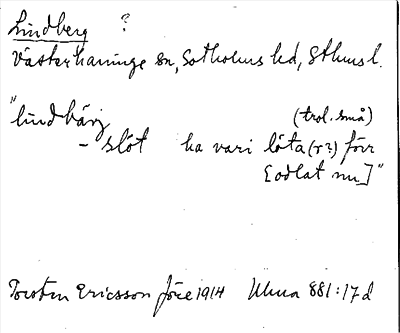 Lindberg ?
Västerhaninge sn, Sotholms hd, Sthms l.
"lindbärj (trol. små)
- slöt ha vari löta (r?) förr
[odlat nu]"
Torsten Ericsson före 1914 Ulma 881:17 d